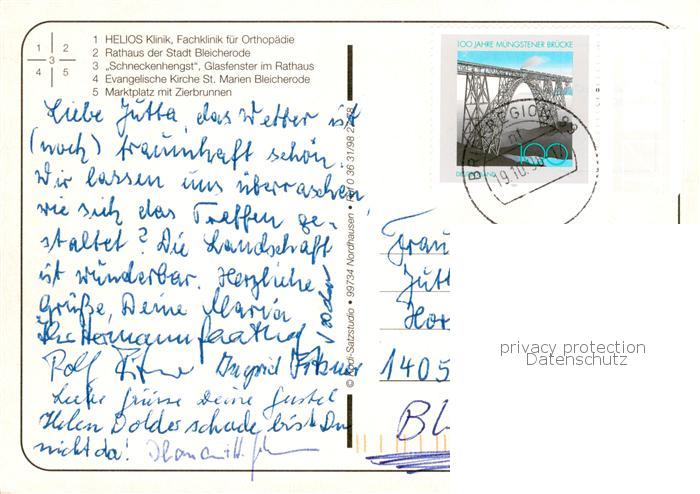 1 HELIOS Klinik, Fachklinik für Orthopädie
2 Rathaus der Stadt Bleicherode
3 „Schneckenhengst", Glasfenster im Rathaus
4 Evangelische Kirche St. Marien Bleicherode
5 Marktplatz mit Zierbrunnen
1 2
3
4 5
Liebe Jutta, das Wetter ist
(noch) traumhaft schön.
Wir lassen uns überraschen,
wie sich das Treffen ge-
staltet? Die Landschaft
ist wunderbar. Herzliche
Grüße, Deine Maria
Ihr Hermann
Rolf Ingrid
Liebe Grüsse Deine Gustel
Helen Doldes schade bist Du
nicht da!
Nordi-Satzstudio • 99734 Nordhausen
100 JAHRE MÜNGSTENER BRÜCKE
100
DEUTSCHLAND
BRIEFREGION
19.10.98
Frau
Jutt
Hor
1405
BL
privacy protection
Datenschutz